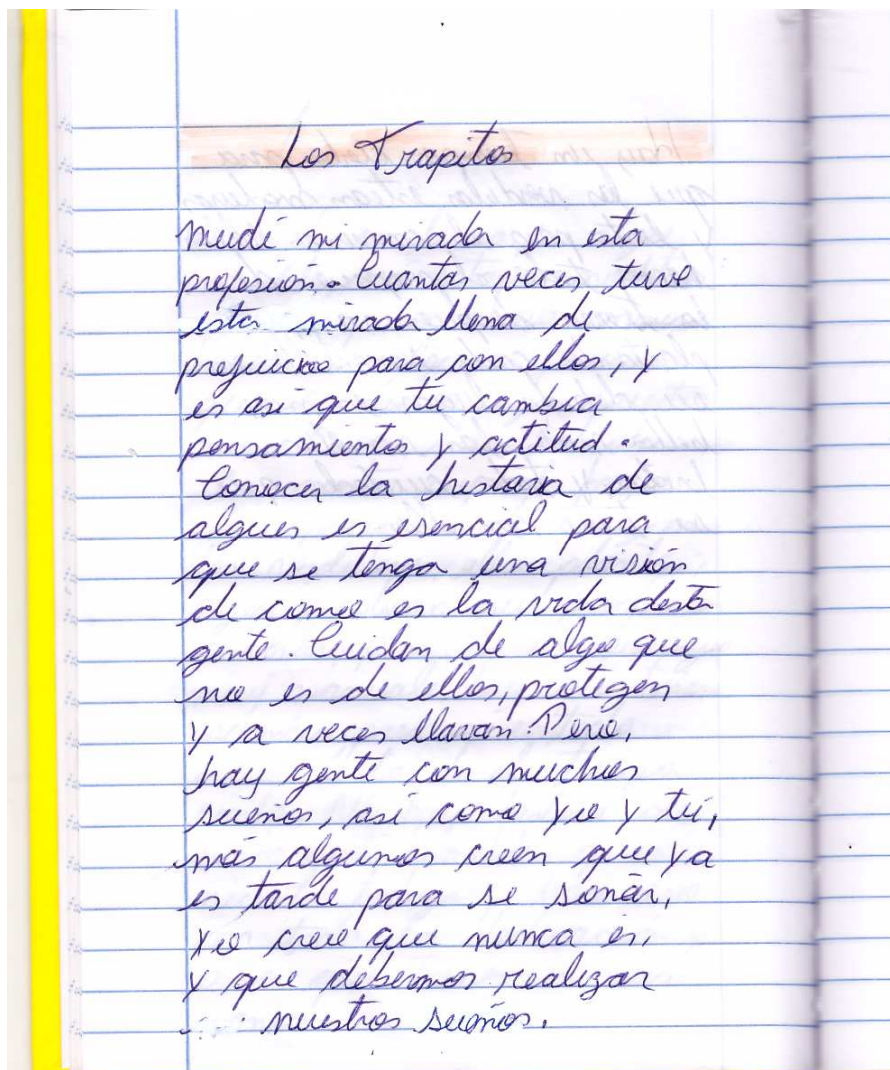 Los Trapitos
mudé mi mirada en esta
profesión. Cuantas veces tuve
esta mirada llena de
prejuicios para con ellos, y
es asi que tu cambia
pensamientos y actitud.
Conocer la historia de
alguen es esencial para
que se tenga una visión
de como es la vida desta
gente. Cuidan de algo que
no es de ellos, protegen
y a veces llavan. Pero,
hay gente con muchos
sueños, asi como yo y tú,
más algunos creen que ya
es tarde para se soñar,
yo creo que nunca es,
y que debermos realizar
nuestros sueños.